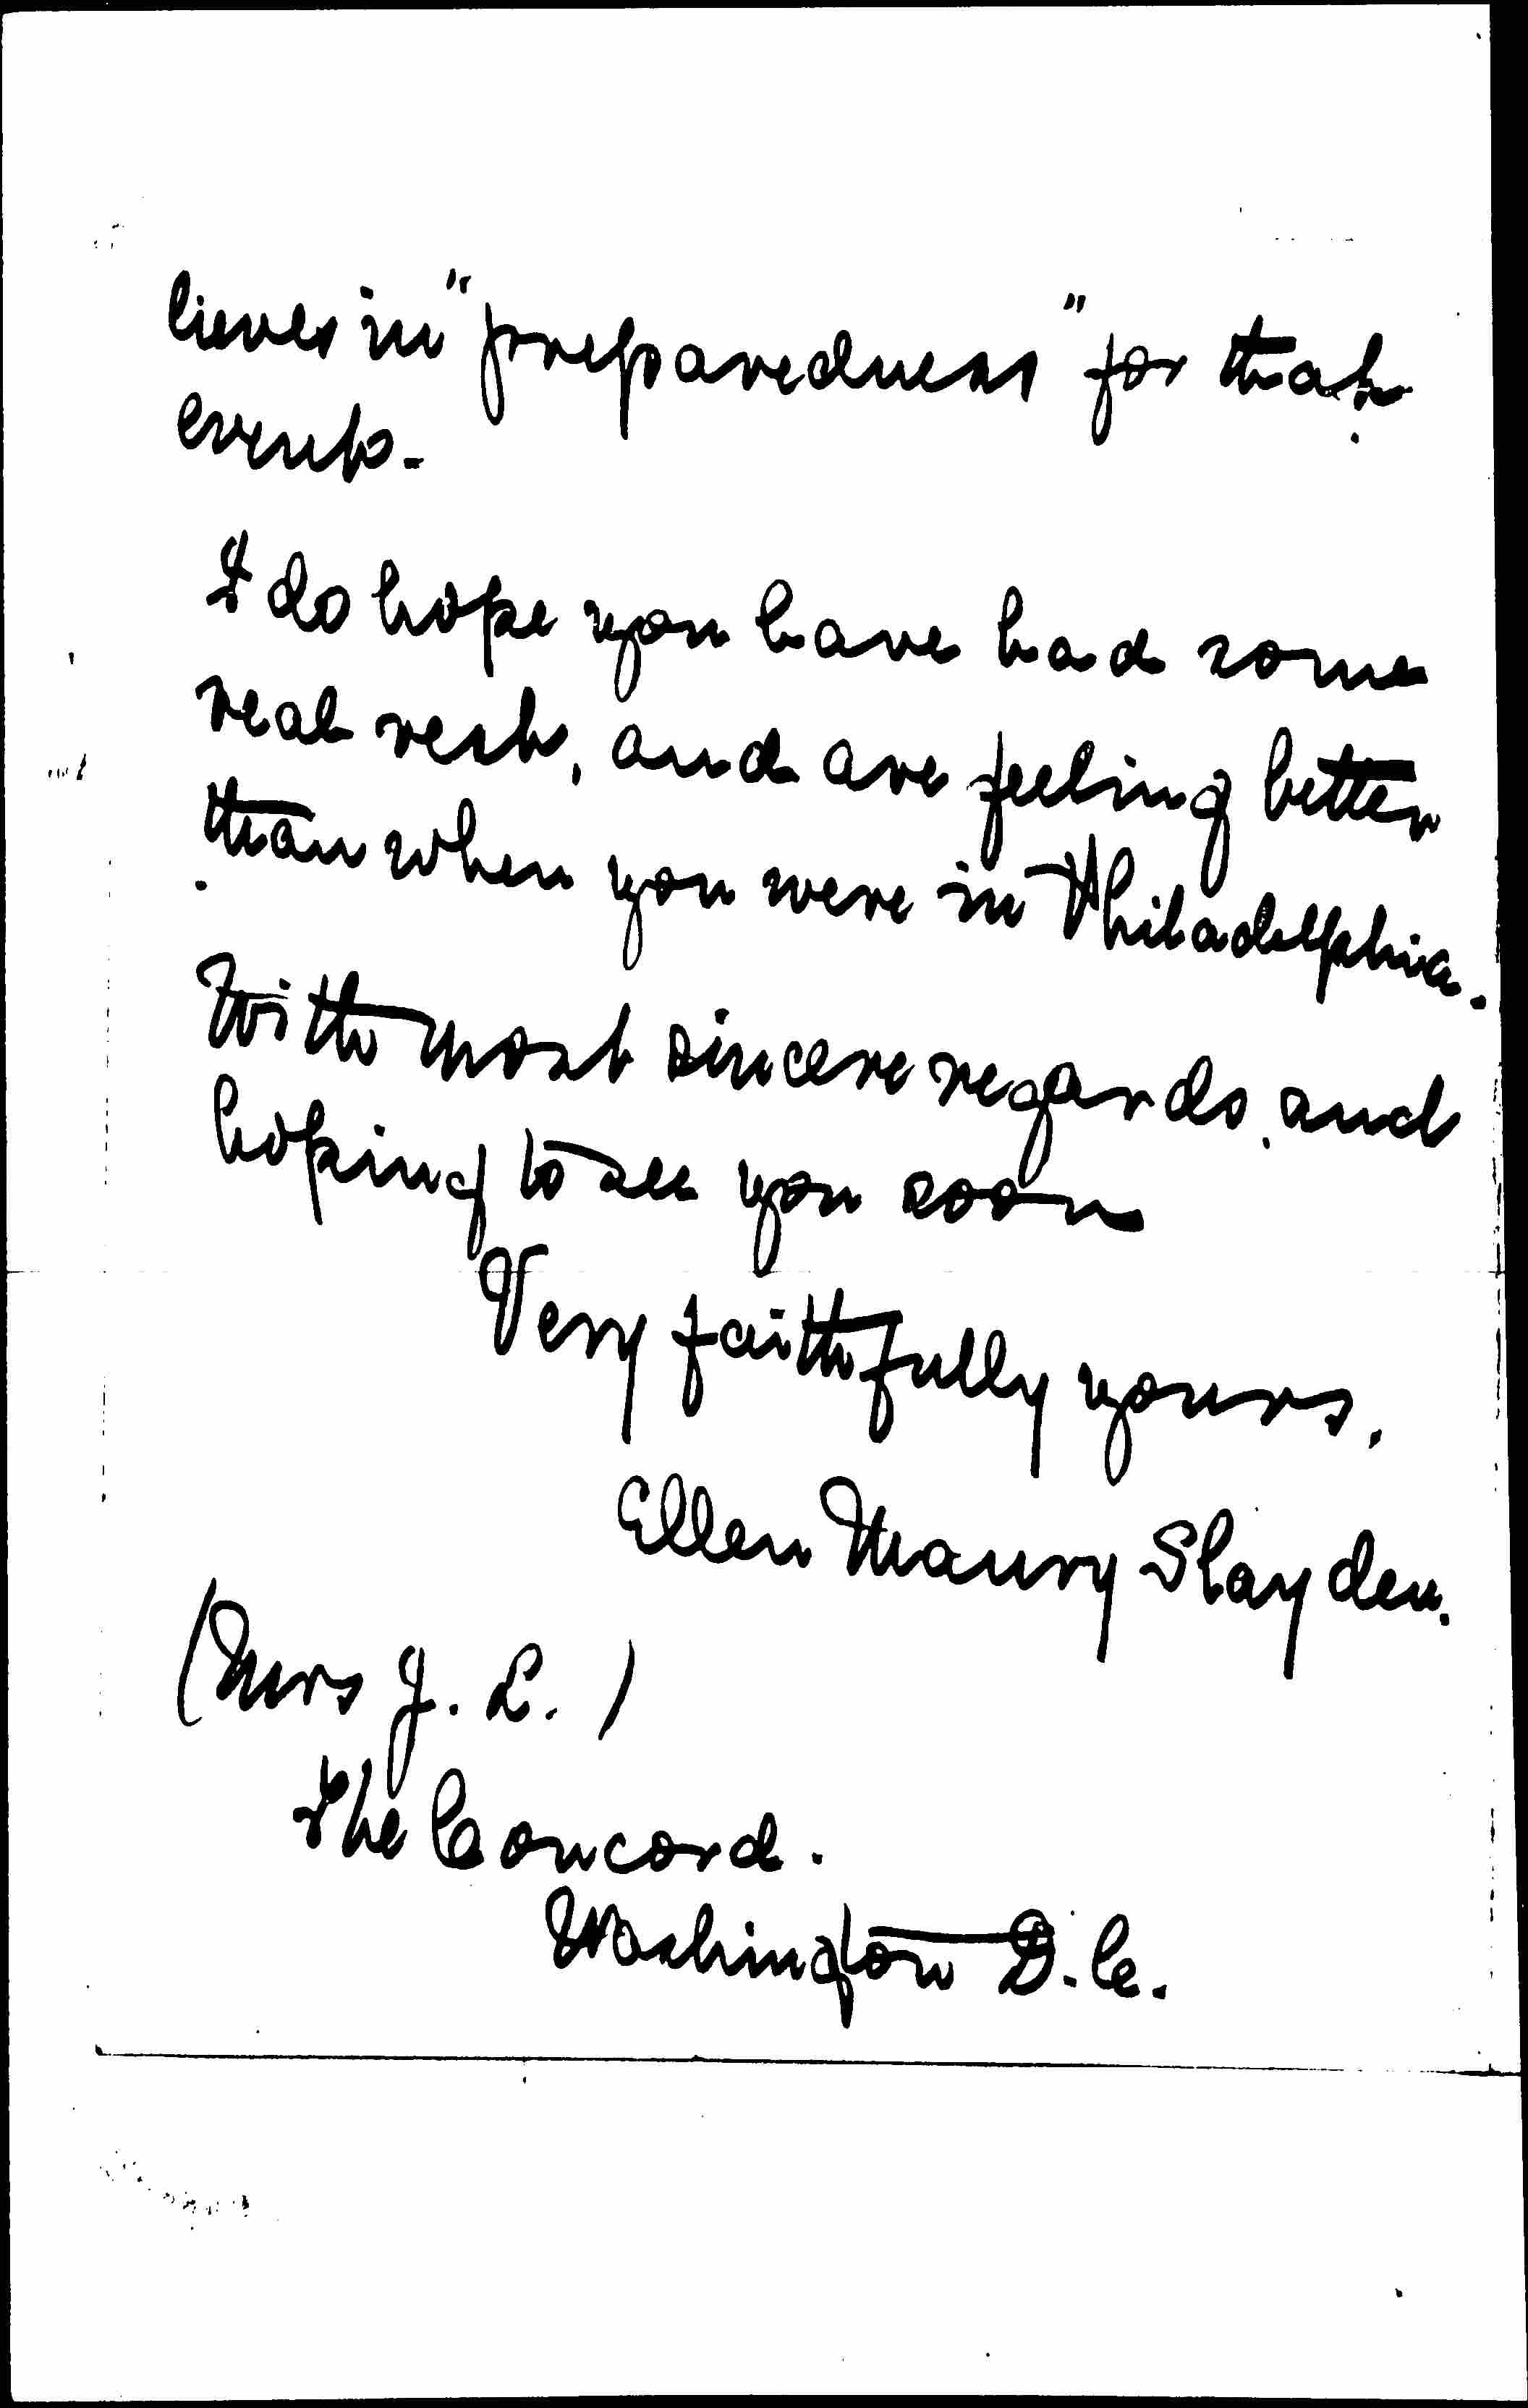 lieves in "preparedness" for that
event.
I do hope you have had some
real rest, and are feeling better
than when you were in Philadelphia.
With most sincere regards, and
hoping to see you soon
Very faithfully yours,
Ellen Maury Slayden.
(Mrs J. L.)
The Concord.
Washington D.C.